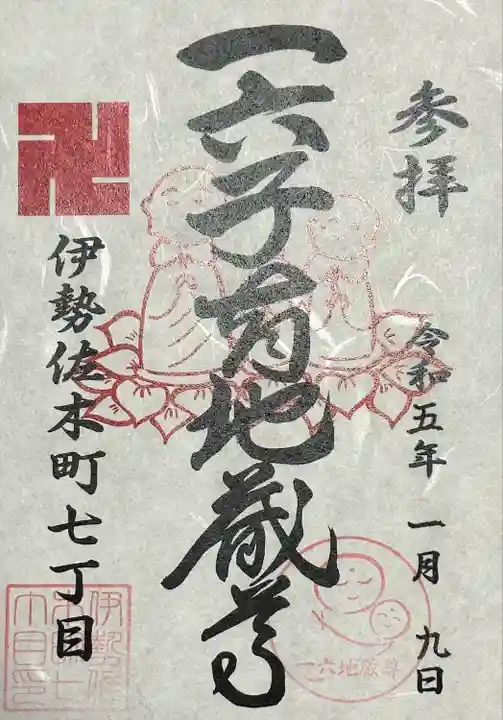 参拝
令和五年 一月 九日
一六子育地蔵尊
伊勢佐木町七丁目
一六地蔵尊
伊勢佐
木町七
丁目印